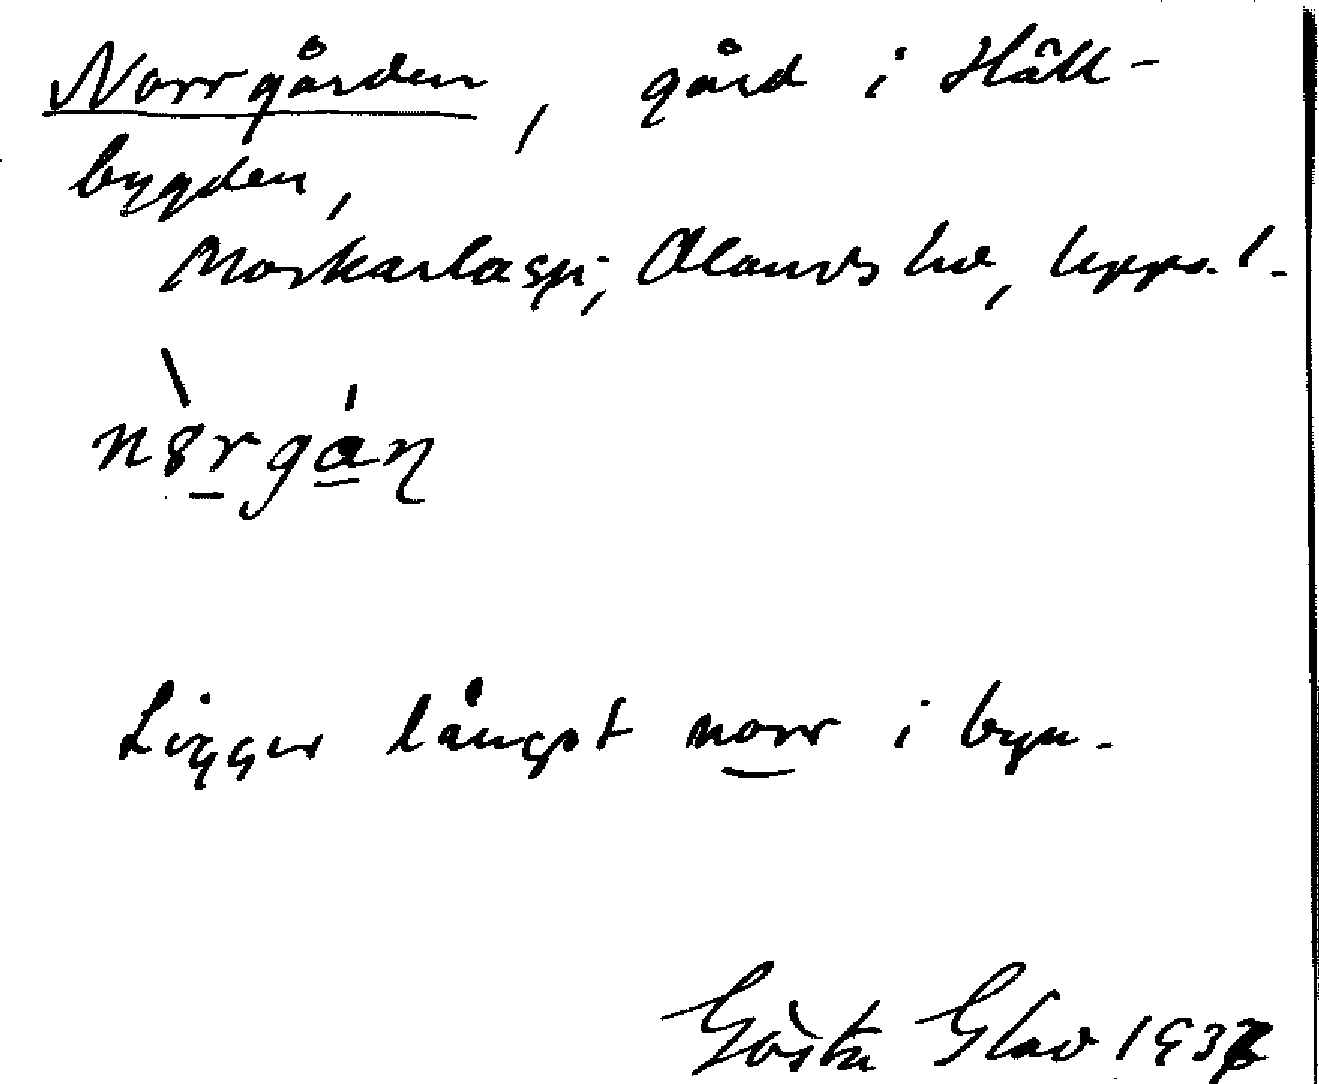 Norrgården, gård i Häll-
bygden,
Morkarla sn; Olands hd, Upps. l.
nȣrgaɳ
Ligger längst norr i byn.
Gösta Glav